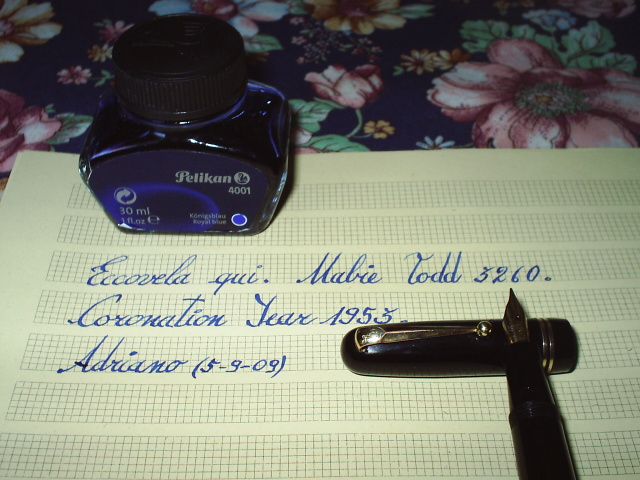 Pelikan
4001
30 ml
1 fl.oz ℮
Königsblau
Royal blue
Eccovela qui. Mabie Todd 3260.
Coronation Year 1953.
Adriano (5-9-09)